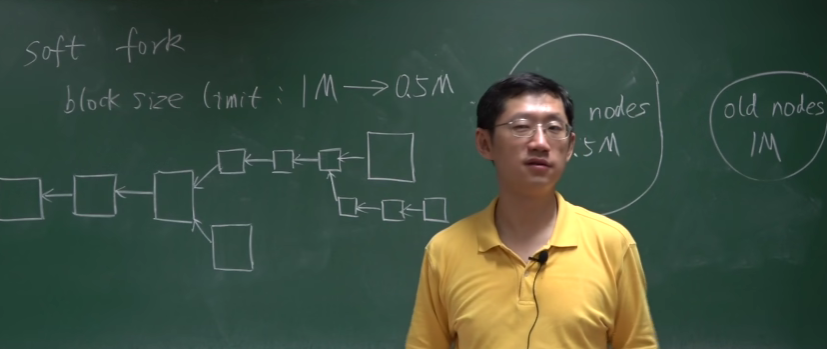 soft fork
block size limit : 1M → 0.5M
nodes
.5M
old nodes
1M